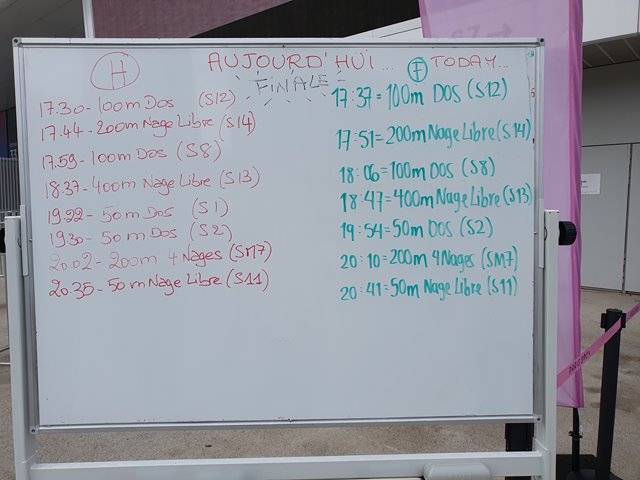 AUJOURD'HUI... TODAY...
FINALE
H
17.30 - 100m Dos (S12)
17.44 - 200m Nage Libre (S14)
17.59 - 100m Dos (S8)
18.37 - 400m Nage Libre (S13)
19.22 - 50m Dos (S1)
19.30 - 50m Dos (S2)
20.02 - 200m 4 Nages (SM7)
20.35 - 50m Nage Libre (S11)
F
17:37 = 100m DOS (S12)
17:51 = 200m Nage Libre (S14)
18:06 = 100m DOS (S8)
18:47 = 400m Nage Libre (S13)
19:54 = 50m DOS (S2)
20:10 = 200m 4Nages (SM7)
20:41 = 50m Nage Libre (S11)